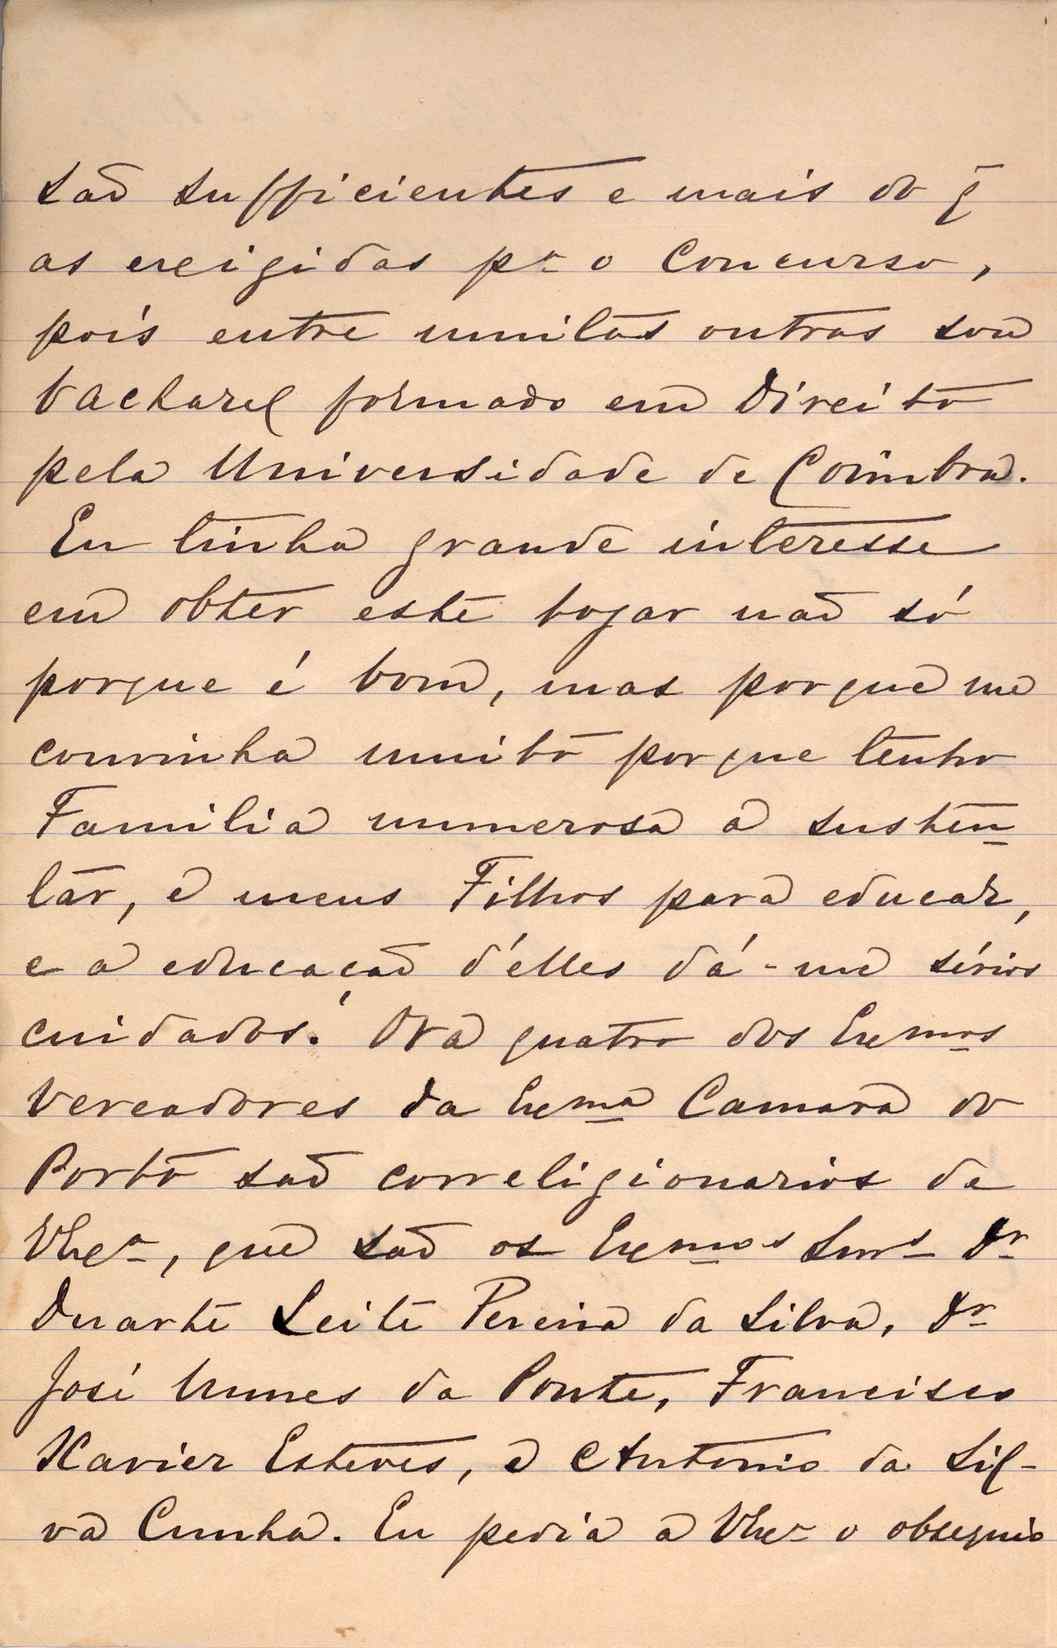 são sufficientes e mais do q̃
as exigidas pª o Concurso,
pois entre muitas outras sou
bacharel formado em Direito
pela Universidade de Coimbra.
Eu tinha grande interesse
em obter este logar não só
porque é bom, mas porque me
convinha muito porque tenho
Familia numerosa a susten-
tar, e meus Filhos para educar,
e a educação d'elles dá-me sérios
cuidados! Ora quatro dos Exmos
Vereadores da Exma Camara do
Porto são correligionarios de
VExª, que são os Exmos Snrs Dr
Duarte Leite Pereira da Silva, Dr
José Nunes da Ponte, Francisco
Xavier Esteves, e Antonio da Sil-
va Cunha. Eu pedia a VExª o obsequio